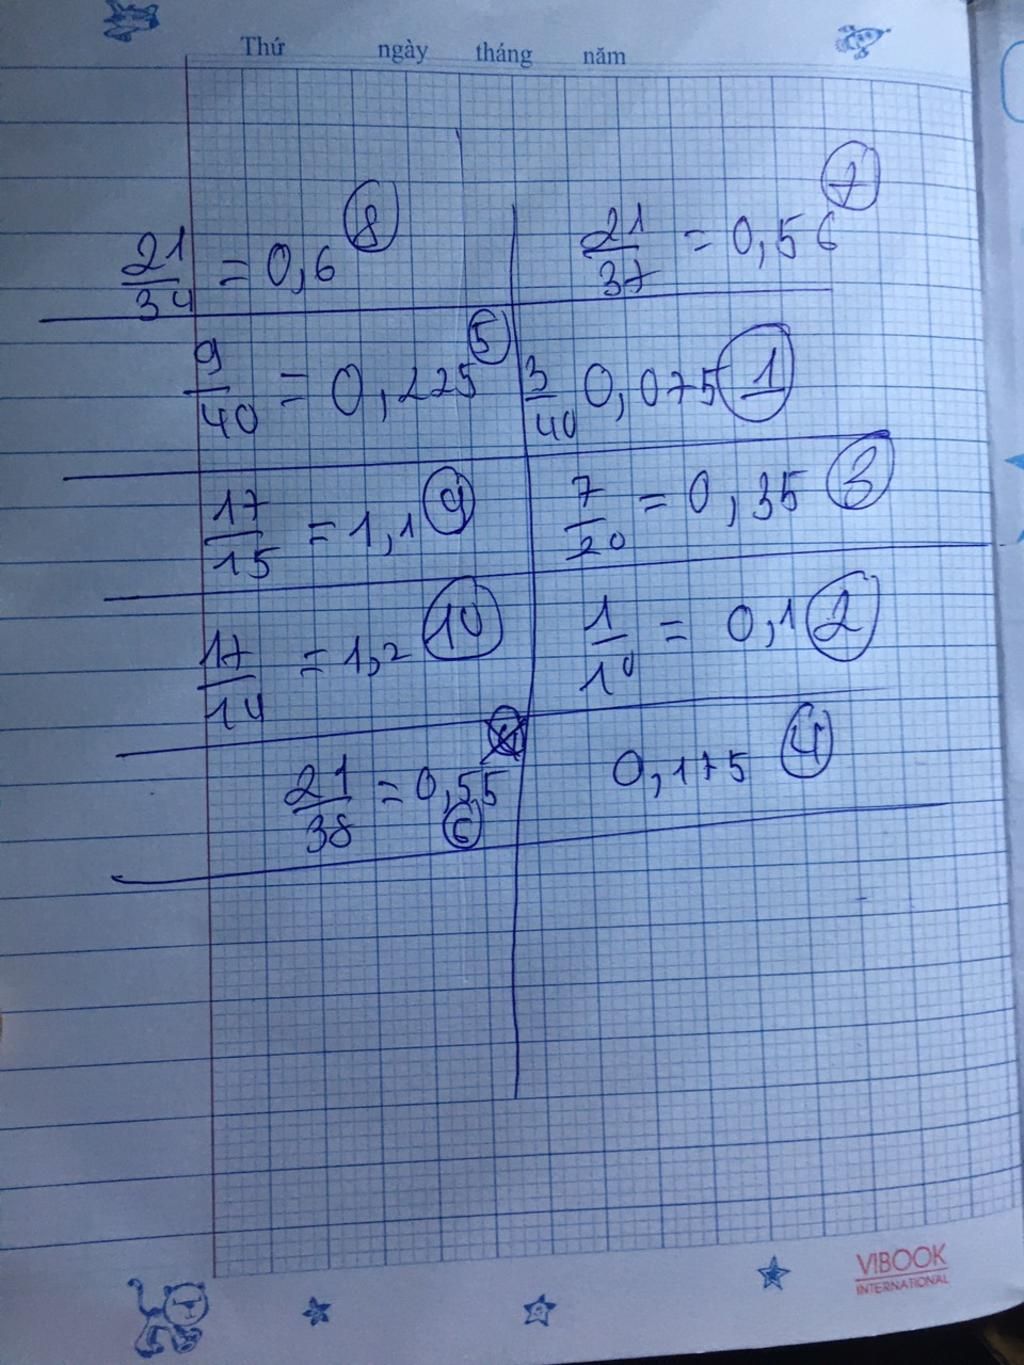 Thứ ngày tháng năm
21/34 = 0,6 8
21/37 = 0,56 7
9/40 = 0,225 5
3/40 0,075 1
17/15 = 1,1 9
7/20 = 0,35 3
17/14 = 1,2 10
1/10 = 0,1 2
21/38 = 0,55 6
0,175 4
VIBOOK
INTERNATIONAL